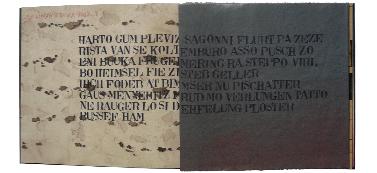 HARTO GUM PLEVIZ SAGONNI FLURT PA ZEZE
RISTA VAN SE KOLIEMBURO ASSO PUSCH ZO
ENI BUUKA FRUGEMERING RA STEPPO VIHL
BOHEIMSEL FIE ZISTER GELLER
FODER AU PISCHATTER
GAUS MENNERITZ PRUD MO VERLUNGEN PATTO
NE RAUGER LO SI DERFELUNG PLOSTER
RUSSEF HAM